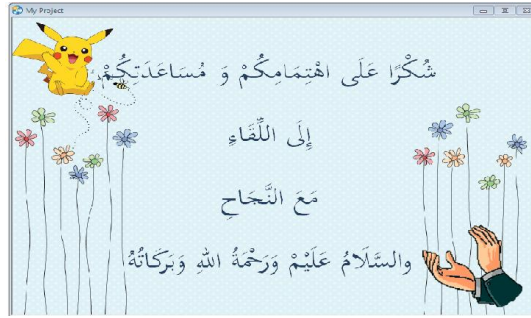 My Project
شُكْرًا عَلَى اهْتِمَامِكُمْ وَ مُسَاعَدَتِكُمْ
إِلَى اللِّقَاءِ
مَعَ النَّجَاحِ
والسَّلَامُ عَلَيْمْ وَرَحْمَةُ اللهِ وَبَرَكَاتُهُ